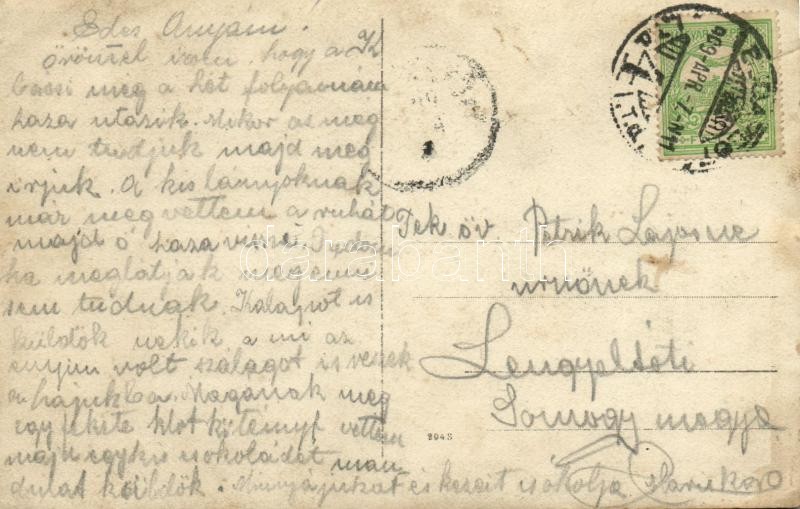 Edes Anyám!
örömmel irom, hogy a K
bácsi meg a hét folyamán
haza utazik. Mikor az meg
nem tudjuk majd meg
irjuk. A kis lányoknak
már megvettem a ruhát
majd ő haza viszi. Tudom
ha meglátják megenni
sem tudnak. Kalapot is
küldök nekik a mi az
enyim volt szalagot is veszek
a hajukba. Magának meg
egy fekete klot kötényt vettem
majd egy kis csokoládét man
dulat küldök. és kezeit csokolja Mariska
Tek öv. Petrik Lajosne
urnőnek
Lengyeltóti
Somogy megye
2943
909 APR -7
darabanth